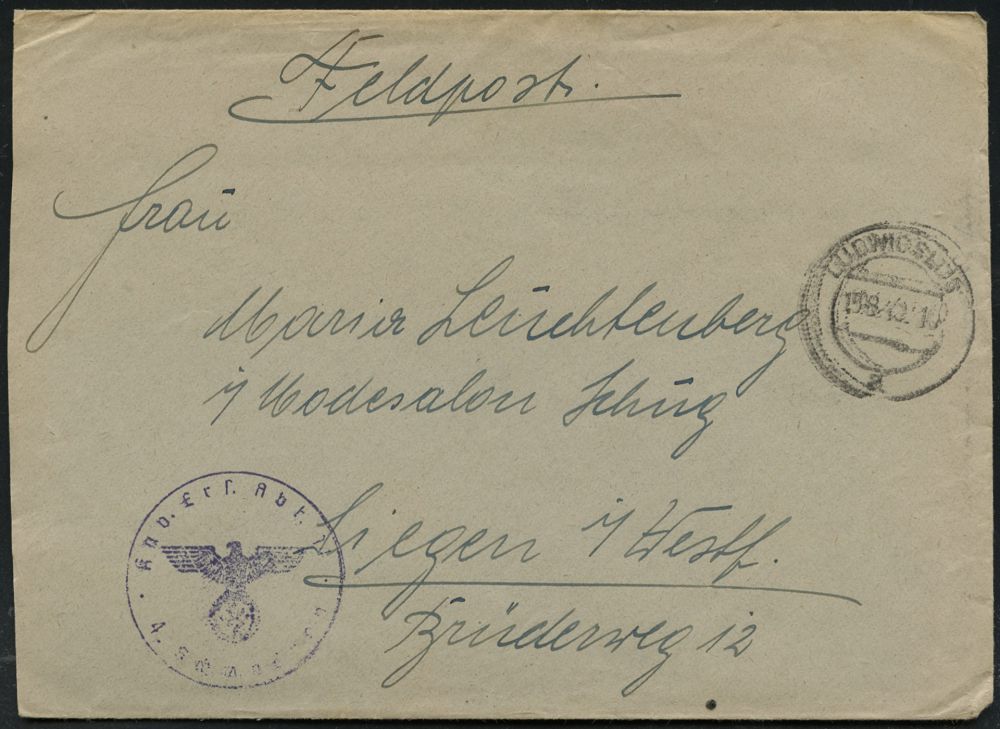 Feldpost.
Frau
Maria Leuchtenberg
i/ Modesalon Schug
Siegen i/Westf.
Brüderweg 12
LUDWIGSLUST
a
Kav. Ers. Abt.
4. Schwadron